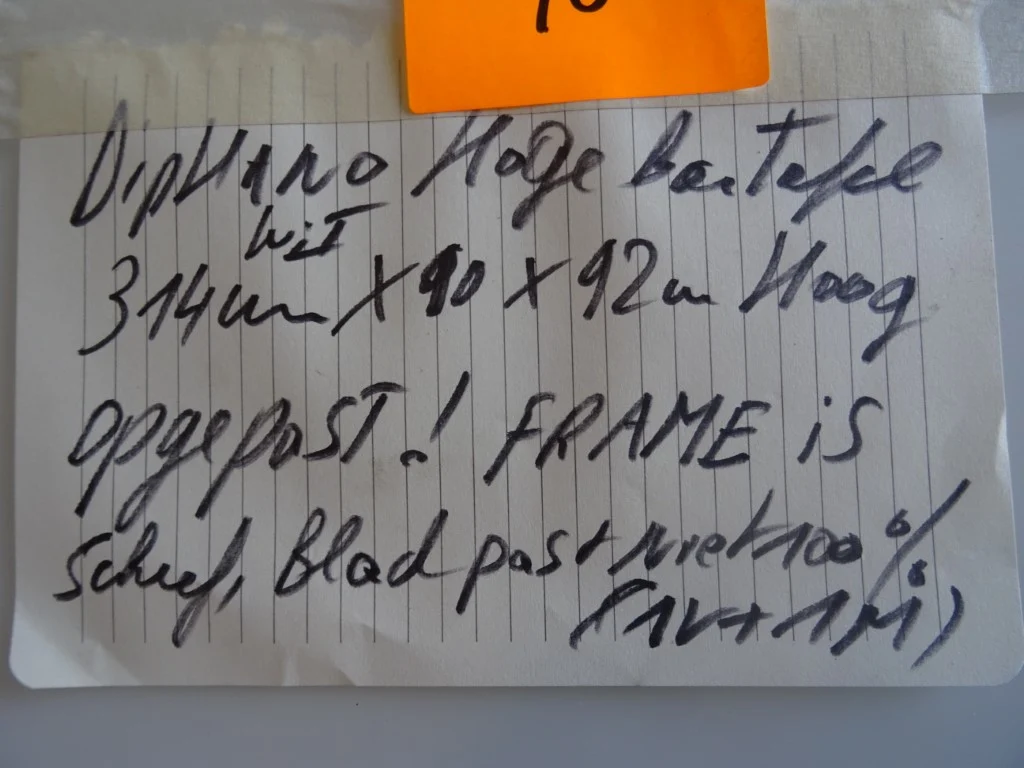 Diphano Hoge bartafel
wit
314cm x 90 x 92cm Hoog
opgepast! FRAME is
scheef, Blad past niet 100%
(1V+1M)